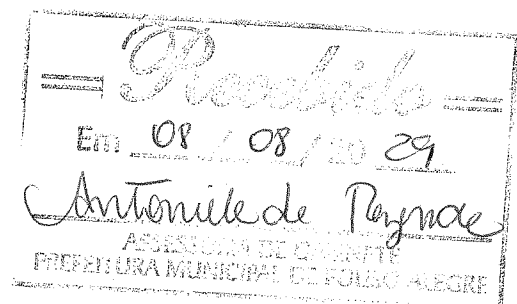 Recebido
Em 08 / 08 / 20 24
Antonielle de Rezende
ASSESSORIA DE GABINETE
PREFEITURA MUNICIPAL DE POUSO ALEGRE